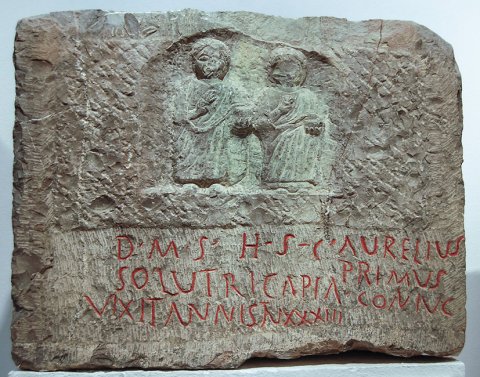 D·M·S· H·S·C· AURELIUS
SOLUTRICAPIA PRIMUS
VIXIT ANNIS NXXXIII CONIUC